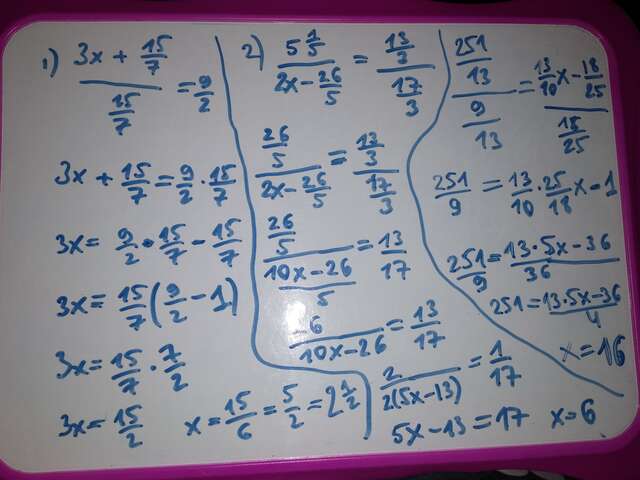 1) (3x + 15/7)/(15/7) = 9/2
3x + 15/7 = 9/2 · 15/7
3x = 9/2 · 15/7 - 15/7
3x = 15/7 (9/2 - 1)
3x = 15/7 · 7/2
3x = 15/2 x = 15/6 = 5/2 = 2 1/2
2) (5 1/5)/(2x - 26/5) = (13/3)/(17/3)
(26/5)/(2x - 26/5) = (13/3)/(17/3)
(26/5)/((10x - 26)/5) = 13/17
6/(10x - 26) = 13/17
2/(2(5x - 13)) = 1/17
5x - 13 = 17 x = 6
(251/13)/(9/13) = (13/10 x - 18/25)/(18/25)
251/9 = 13/10 · 25/18 x - 1
251/9 = (13 · 5x - 36)/36
251 = (13 · 5x - 36)/4
x = 16